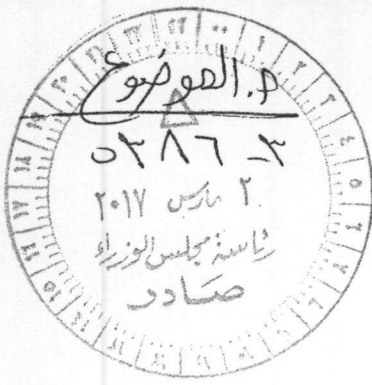 م. الموضوع
٥٣٨٦ - ٣
٢ مارس ٢٠١٧
رئاسة مجلس الوزراء
صادر